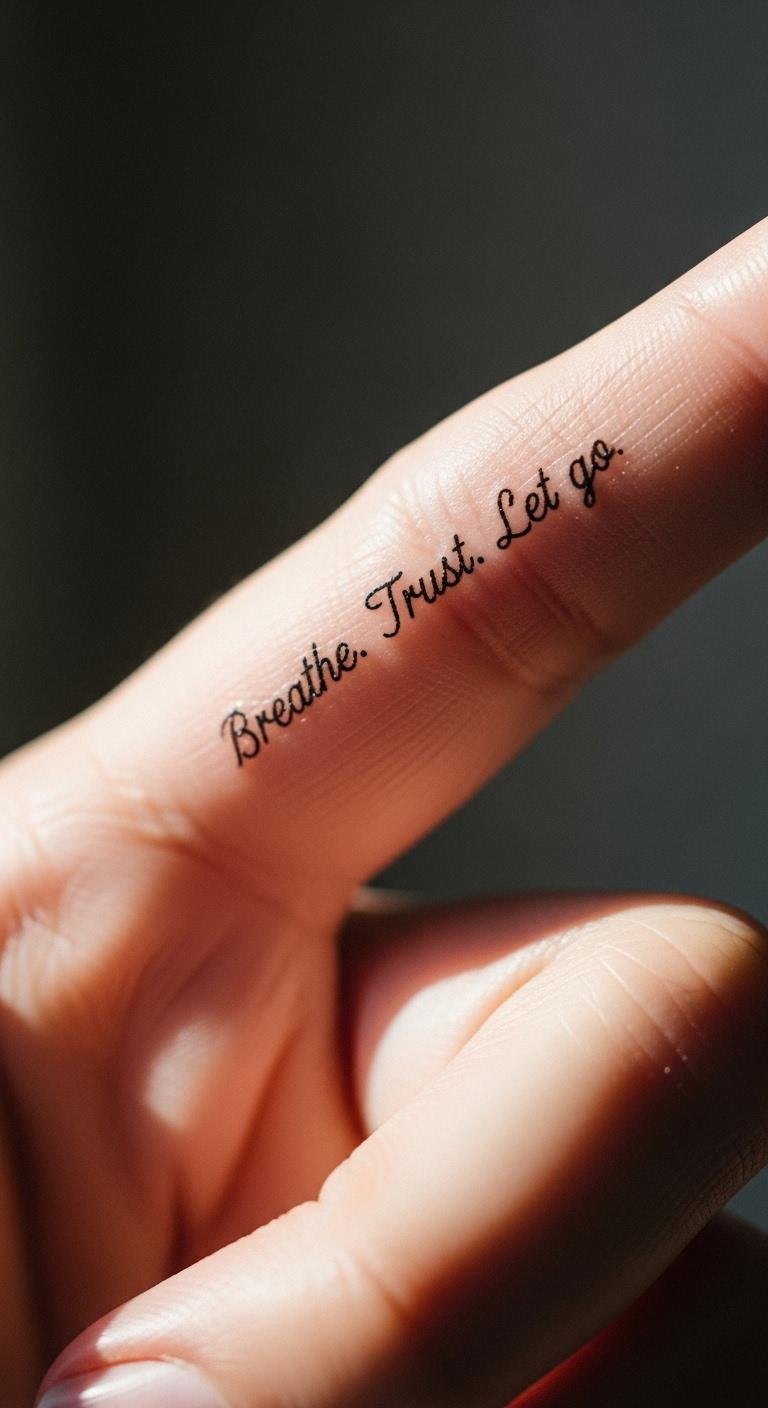 Breathe. Trust. Let go.